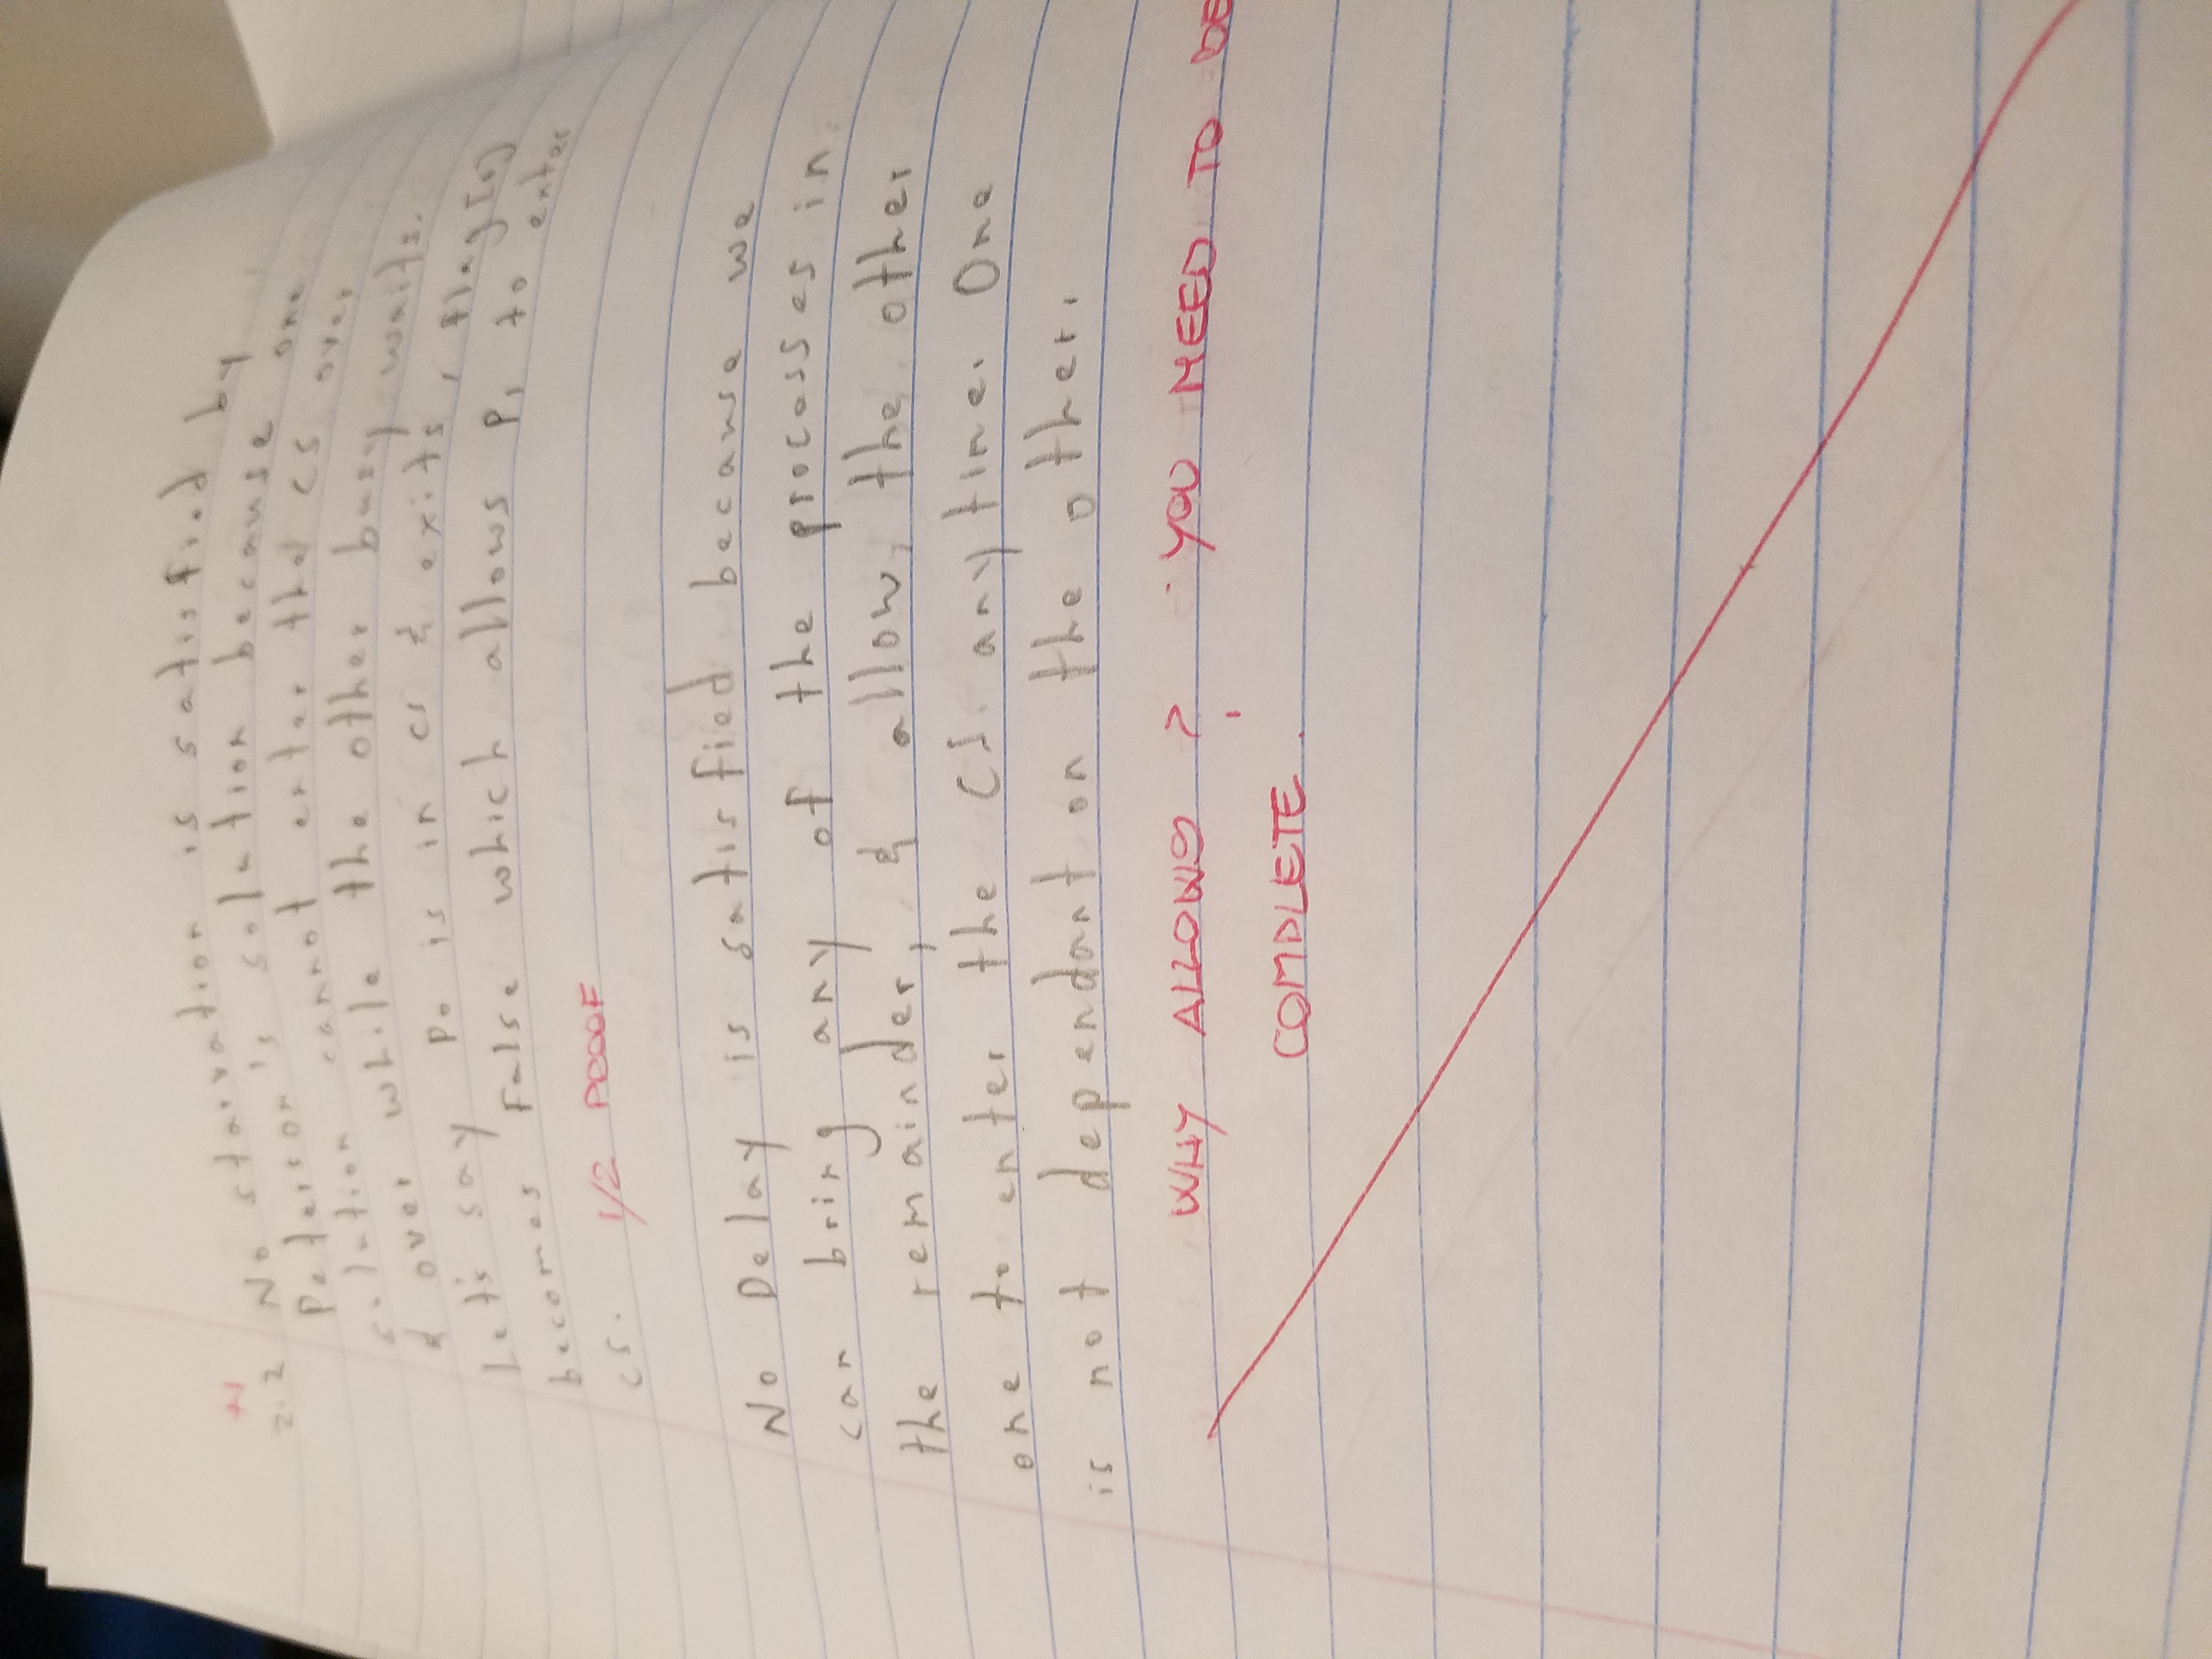 +1
2.2 No starvation is satisfied by
Peterson's solution because one
solution cannot enter the CS over
& over while the other busy waits.
Let's say P0 is in CS & exits, flag[0]
becomes False which allows P1 to enter
CS. 1/2 PROOF
No Delay is satisfied because we
can bring any of the processes in
the remainder, & allow, the other
one to enter the CS anytime. One
is not dependant on the other.
WHY ALLOWS ? YOU NEED TO BE
COMPLETE.